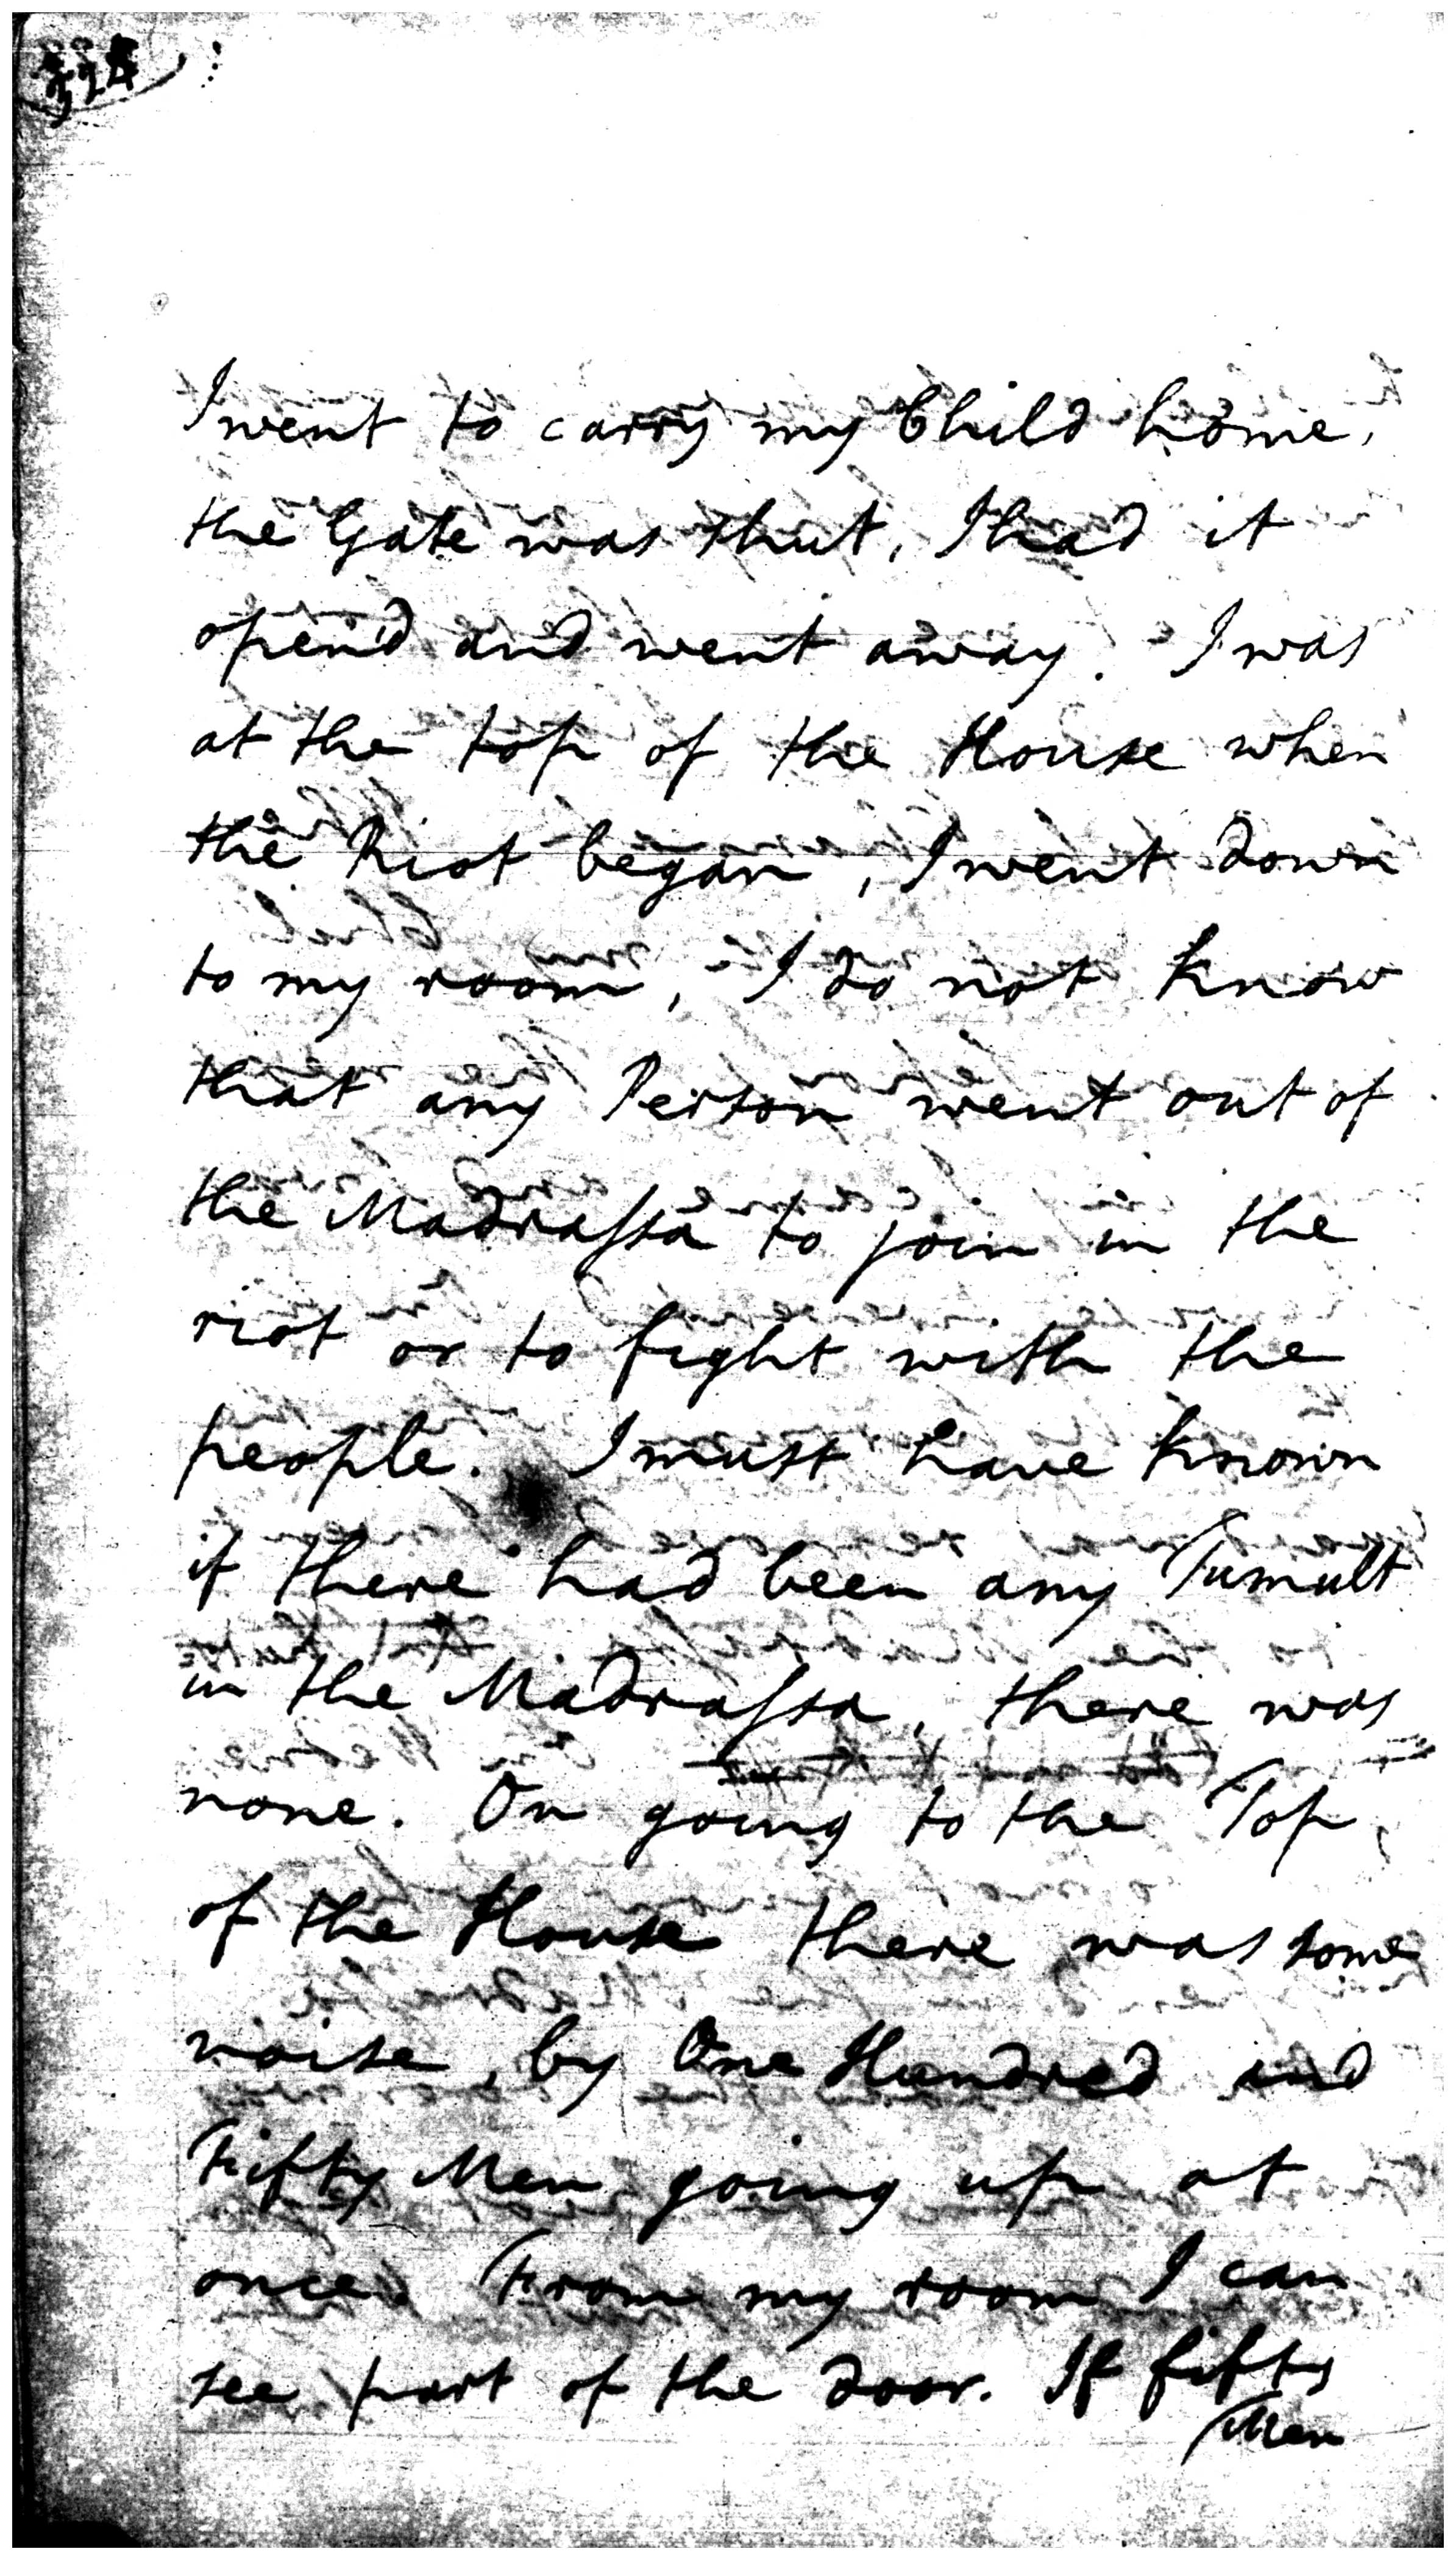 I went to carry my Child home,
the Gate was shut, I had it
open'd and went away. I was
at the top of the House when
the Riot began, I went down
to my room, I do not know
that any Person went out of
the Madraſsa to join in the
riot or to fight with the
people. I must have known
if there had been any Tumult
in the Madraſsa, there was
none. On going to the Top
of the House there was some
noise, by One Hundred and
Fifty Men going up at
once. From my room I can
see part of the door. If fifty
Men